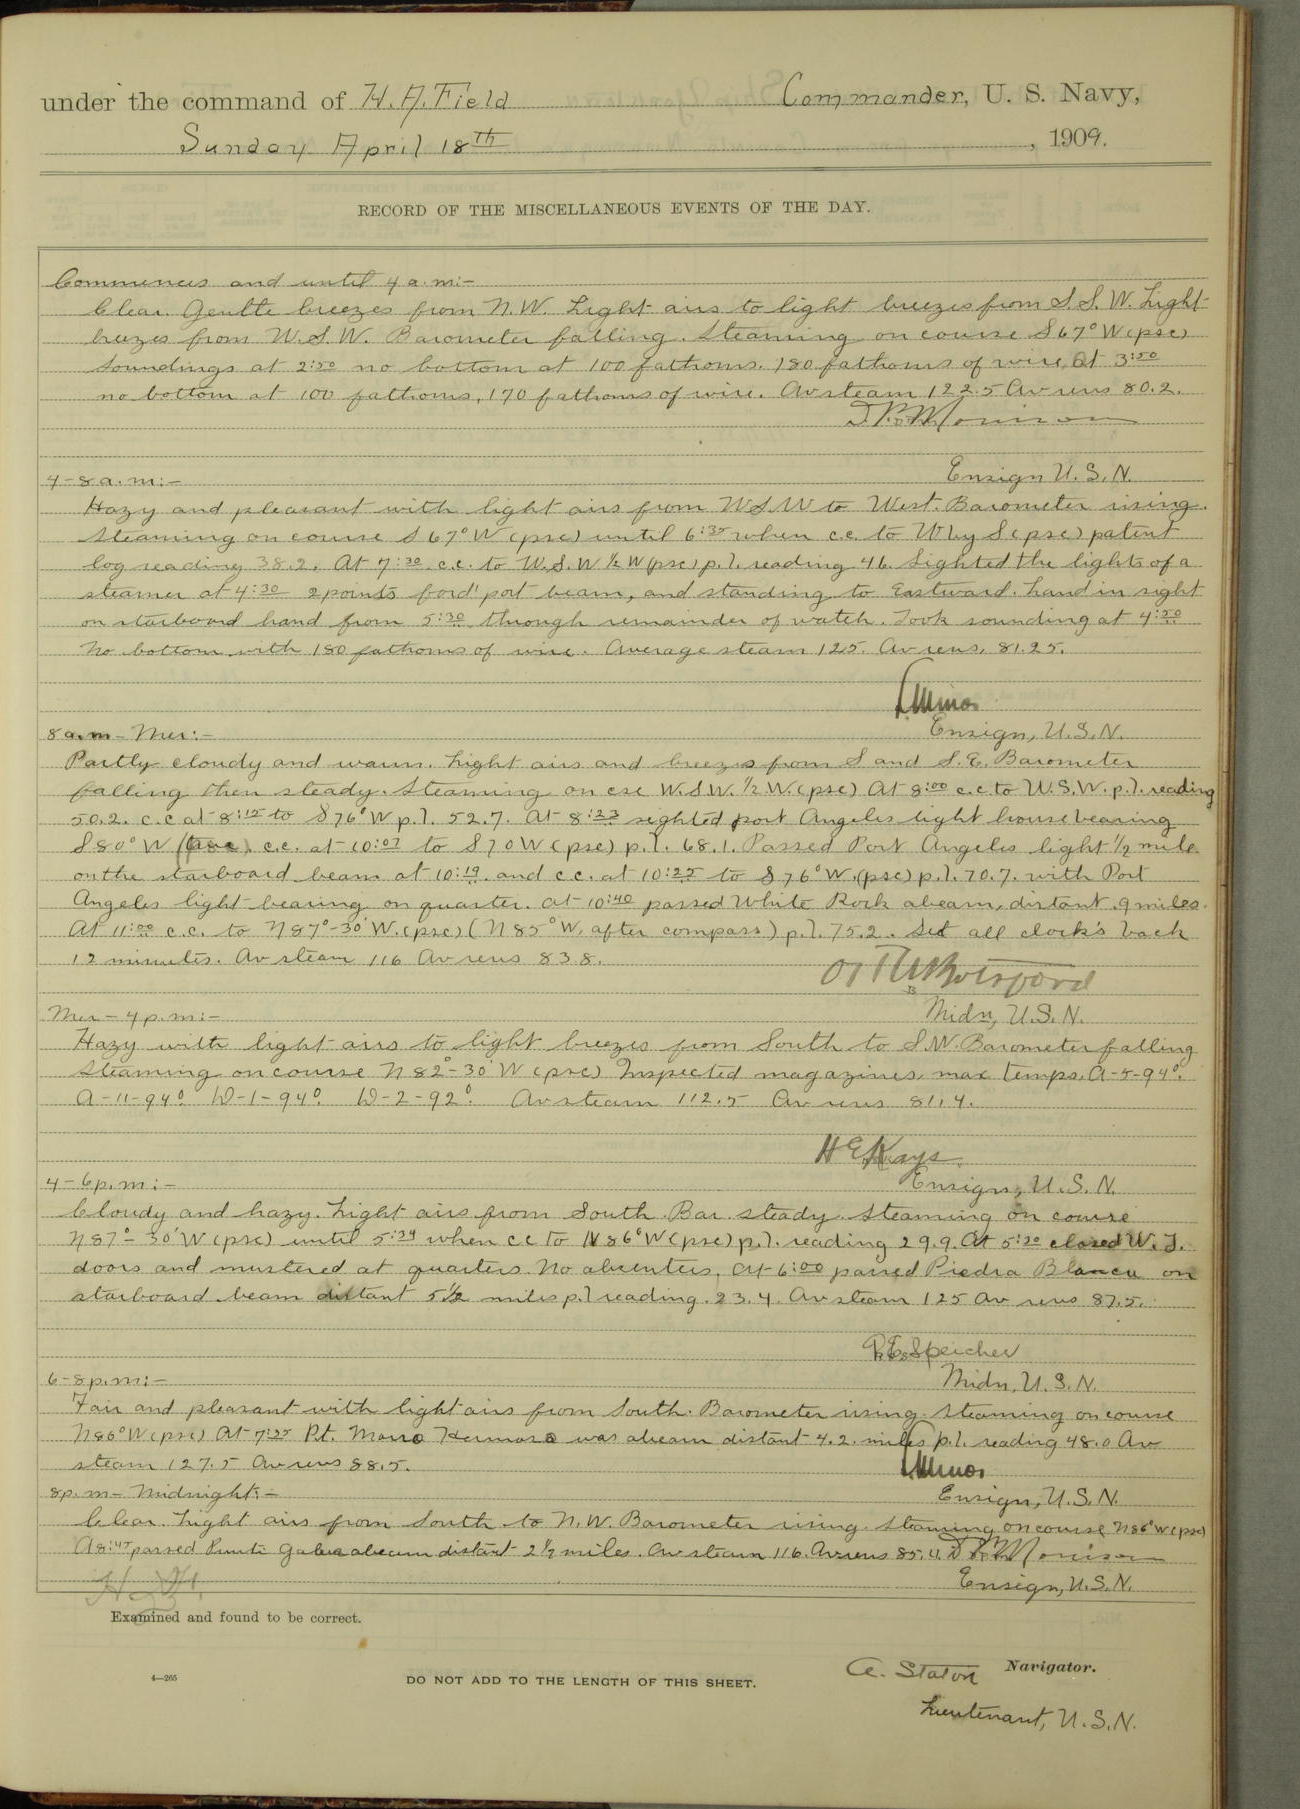 under the command of H. A. Field Commander, U. S. Navy,
Sunday April 18th, 1909.
RECORD OF THE MISCELLANEOUS EVENTS OF THE DAY.
Commences and until 4 a.m:-
Clear. Gentle breezes from N.W. Light airs to light breezes from S.S.W. Light
breezes from W.S.W. Barometer falling. Steaming on course S67°W (psc)
Soundings at 2:50 no bottom at 100 fathoms. 180 fathoms of wire, at 3:50
no bottom at 100 fathoms, 170 fathoms of wire. Av steam 122.5 Av revs 80.2.
Morrison
Ensign U.S.N.
4-8 a.m:-
Hazy and pleasant with light airs from WSW to West. Barometer rising.
Steaming on course S67°W (psc) until 6:35 when c.c. to W by S (psc) patent
log reading 38.2. At 7:30 c.c. to W.S.W ½ W (psc) p.l. reading 46. Sighted the lights of a
steamer at 4:30 2 points for'd port beam, and standing to Eastward. Land in sight
on starboard hand from 5:30 through remainder of watch. Took sounding at 4:50
No bottom with 180 fathoms of wire. Average steam 125. Av revs. 81.25.
Minor
Ensign, U.S.N.
8 a.m - Mer:-
Partly cloudy and warm. Light airs and breezes from S and S.E. Barometer
falling then steady. Steaming on cse W.S.W. ½ W. (psc) At 8:00 c.c. to W.S.W. p.l. reading
50.2. c.c at 8:15 to S76°W p.l. 52.7. At 8:23 sighted port Angeles light house bearing
S80°W c.c. at 10:07 to S70W (psc) p.l. 68.1. Passed Port Angeles light ½ mile
on the starboard beam at 10:19 and c.c. at 10:25 to S76°W. (psc) p.l. 70.7. with Port
Angeles light bearing on quarter. At 10:40 passed White Rock abeam, distant .9 miles.
At 11:00 c.c. to N87°-30'W. (psc) (N85°W. after compass) p.l. 75.2. Set all clocks back
12 minutes. Av steam 116 Av revs 83.8.
Botsford
Midn, U.S.N.
Mer - 4 p.m:-
Hazy with light airs to light breezes from South to S.W. Barometer falling
Steaming on course N82°-30'W (psc) Inspected magazines, max temps. A-5-94°.
A-11-94° D-1-94° D-2-92° Av steam 112.5 Av revs 81.4.
H E Kays.
Ensign, U.S.N.
4-6 p.m:-
Cloudy and hazy. Light airs from South. Bar steady. Steaming on course
N87°-30'W (psc) until 5:24 when c.c to N86°W (psc) p.l. reading 29.9. At 5:20 closed W.T.
doors and mustered at quarters. No absentees. At 6:00 passed Piedra Blanca on
starboard beam distant 5½ miles p.l reading .23.4. Av steam 125 Av revs 87.5.
R.E. Speicher
Midn, U.S.N.
6-8 p.m:-
Fair and pleasant with light airs from South. Barometer rising. Steaming on course
N86°W (psc) At 7:25 Pt. Morro Hermosa was abeam distant 4.2. miles p.l. reading 48.0 Av
steam 127.5 Av revs 88.5.
Minor
Ensign, U.S.N.
8 p.m - Midnight:-
Clear. Light airs from South to N.W. Barometer rising. Steaming on course N86°W (psc)
A 8:45 passed Punta Galera abeam distant 2½ miles. Av steam 116. Av revs 85.4. Morrison
Ensign, U.S.N.
Examined and found to be correct.
4—265
DO NOT ADD TO THE LENGTH OF THIS SHEET.
A. Staton Navigator.
Lieutenant, U.S.N.